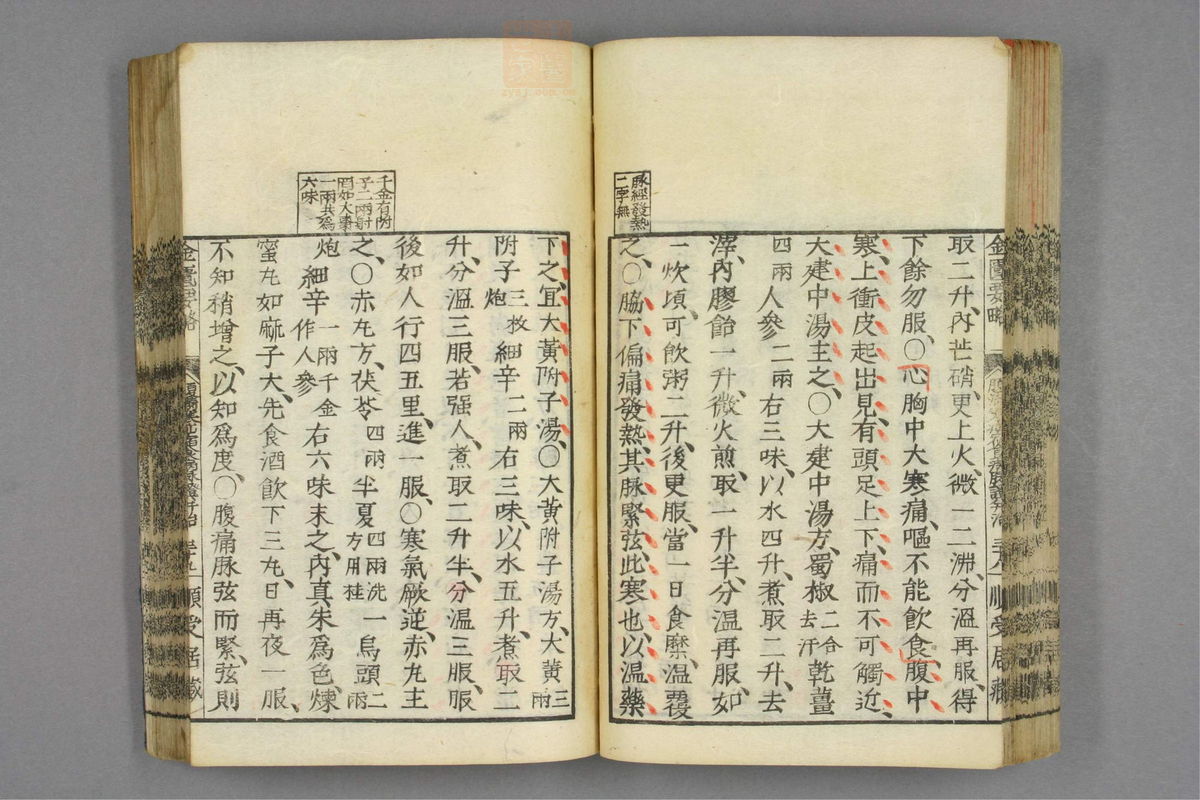 脉經發熱
二字無
取二升、內芒硝、更上火、微一二沸、分溫再服、得
下餘勿服、〇心胸中大寒痛、嘔不能飲食、腹中
寒、上衝皮起、出見、有頭足、上下痛而不可觸近、
大建中湯主之、〇大建中湯方、蜀椒二合去汗乾薑
四兩人參二兩右三味、以水四升、煮取二升、去
滓、內膠飴一升、微火煎、取一升半、分溫再服、如
一炊頃、可飲粥二升、後更服、當一日食糜、溫覆
之、〇脇下偏痛、發熱、其脉緊弦、此寒也、以溫藥
千金有附
子二兩射
罔如大棗
一兩共爲
六味
下之、宜大黃附子湯、〇大黃附子湯方、大黃三兩
附子三枚炮細辛二兩右三味、以水五升、煮取二
升、分溫三服、若强人、煮取二升半、分溫三服、服
後如人行四五里、進一服、〇寒氣厥逆、赤丸主
之、〇赤丸方、茯苓四兩半夏四兩洗一方用桂烏頭二兩
炮細辛一兩千金作人參右六味末之、內真朱爲色、煉
蜜丸如麻子大、先食酒飲下三丸、日再夜一服、
不知稍增之、以知爲度、〇腹痛脉弦而緊、弦則
金匱要略
順受居藏